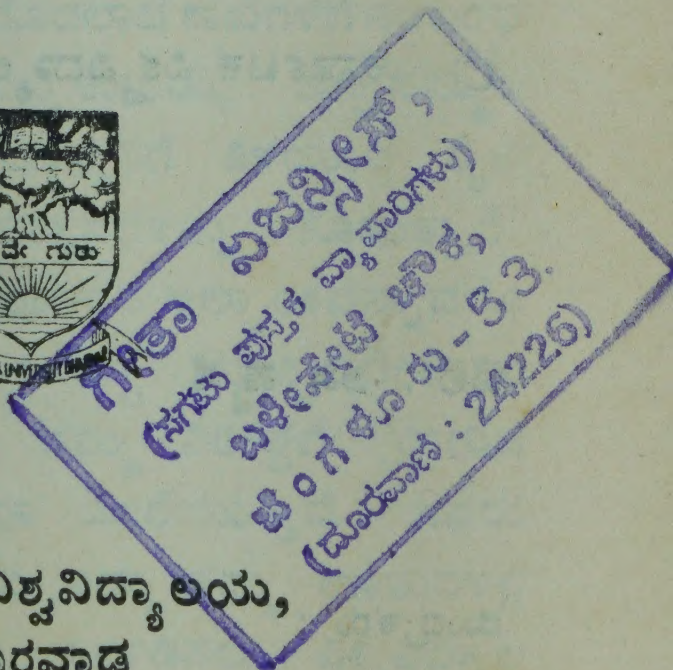 ವೇ ಗುರು
ಗೀತಾ ಏಜನ್ಸೀಸ್,
(ಸಗಟು ಪುಸ್ತಕ ವ್ಯಾಪಾರಿಗಳು)
ಬಳೇಪೇಟೆ ಚೌಕ,
ಬೆಂಗಳೂರು - 53.
(ದೂರವಾಣಿ : 24226)
ವಿಶ್ವವಿದ್ಯಾಲಯ,
ಧಾರವಾಡ